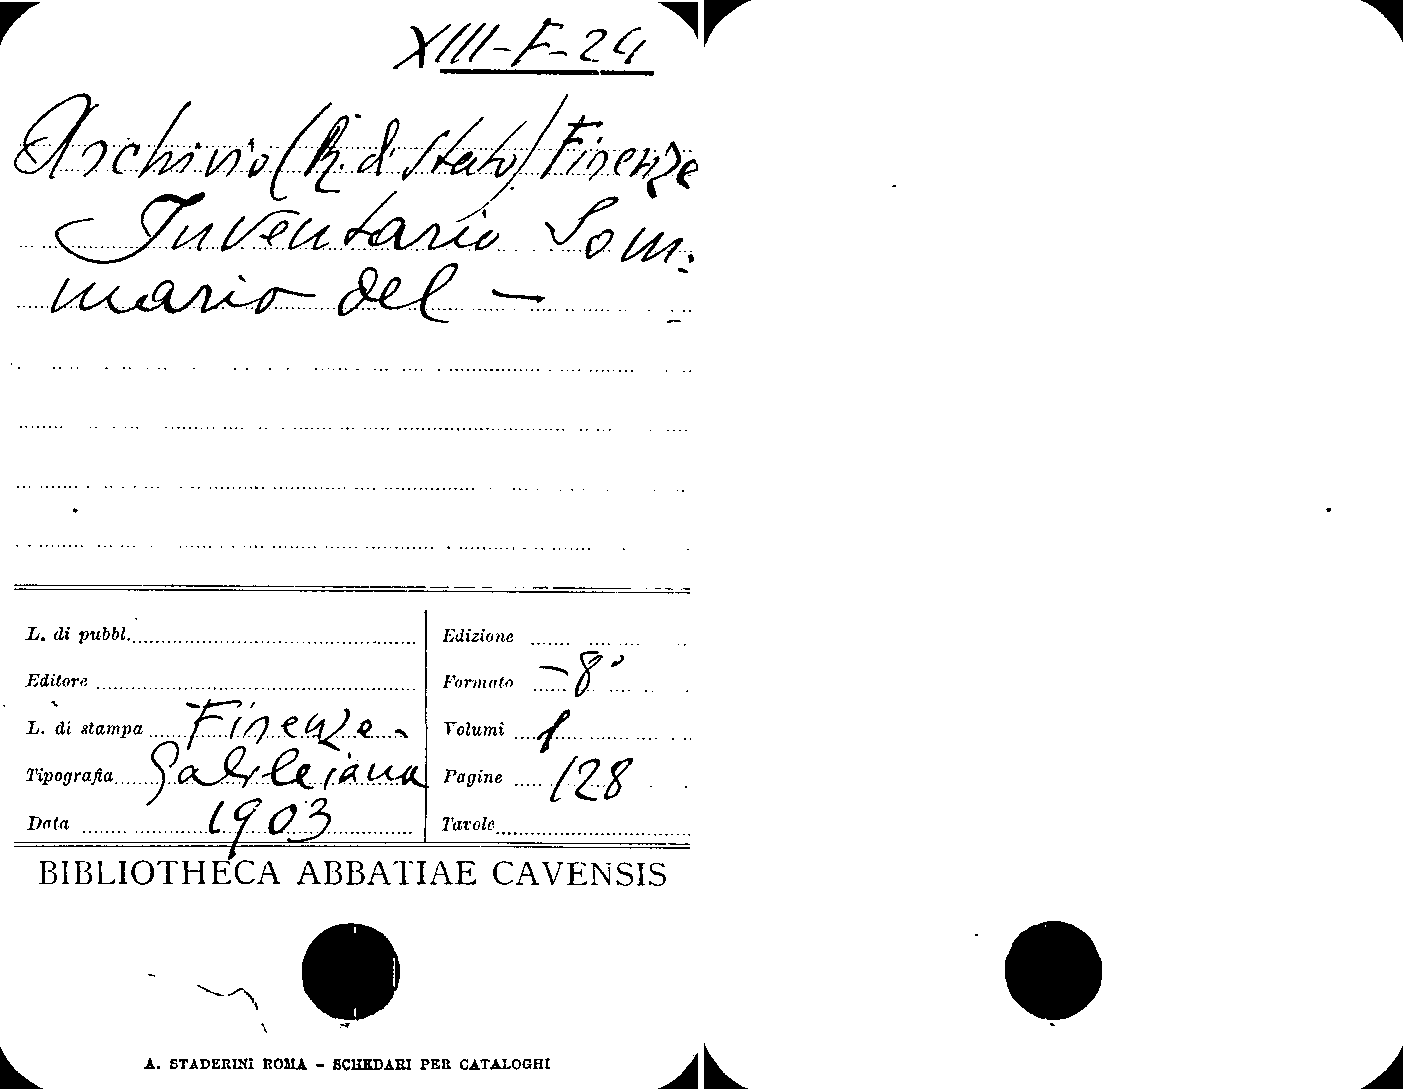 XIII-F-24
Archivio (R. di Stato) Firenze
Inventario Som-
mario del —
L. di pubbl.
Edizione
Editore
Formato – 8°
L. di stampa Firenze -
Volumi 1
Tipografia Galileiana
Pagine 128
Data 1903
Tavole
BIBLIOTHECA ABBATIAE CAVENSIS
A. STADERINI ROMA – SCHEDARI PER CATALOGHI